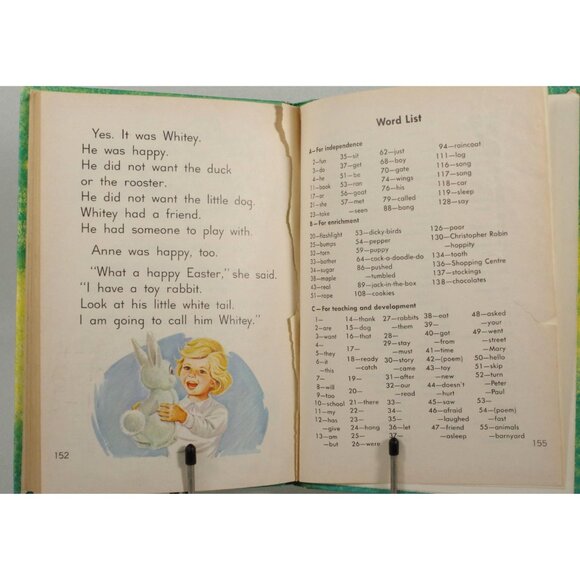 Yes. It was Whitey.
He was happy.
He did not want the duck
or the rooster.
He did not want the little dog.
Whitey had a friend.
He had someone to play with.
Anne was happy, too.
"What a happy Easter," she said.
"I have a toy rabbit.
Look at his little white tail.
I am going to call him Whitey."
152
Word List
A—For independence
2—fun
3—do
4—he
11—book
17—ar
21—she
23—take
35—sit
39—get
51—be
53—ran
56—goat
57—met
58—seen
62—just
68—boy
70—gate
74—wings
76—his
79—called
88—bang
94—raincoat
111—log
116—song
117—song
118—car
119—sleep
128—say
B—For enrichment
20—flashlight
25—bumps
32—torn
33—bother
34—sugar
38—maple
43—real
51—rope
53—dicky-birds
54—pepper
59—puppy
64—cock-a-doodle-do
86—pushed
—tumbled
89—jack-in-the-box
108—cookies
126—poor
130—Christopher Robin
—hoppity
134—tooth
136—Shopping Centre
137—stockings
138—chocolates
C—For teaching and development
1—
2—are
3—want
4—
5—they
6—it
—this
7—
8—will
9—too
10—school
11—my
12—has
—give
13—am
—but
14—thank
15—dog
16—that
17—
18—ready
—catch
19—
20—
21—there
22—
23—
24—hang
25—
26—were
27—rabbits
—them
28—
—must
30—story
—came
31—after
32—our
—read
33—
34—
35—
36—let
37—
—asleep
38—eat
39—
40—got
41—time
42—(poem)
43—toy
—new
44—doesn't
—hurt
45—saw
46—afraid
47—friend
48—asked
—your
49—went
—from
—street
—Mary
50—hello
51—skip
52—turn
—Peter
—Paul
53—
54—(poem)
—laughed
—fast
55—animals
—barnyard
155